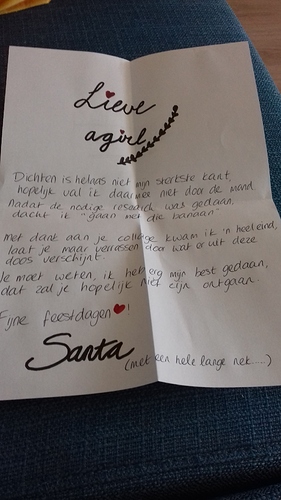 Lieve
agirl
Dichten is helaas niet mijn sterkste kant,
hopelijk val ik daarmee niet door de mand.
Nadat de nodige research was gedaan,
dacht ik "gaan met die banaan"
Met dank aan je collega kwam ik 'n heel eind,
laat je maar verrassen door wat er uit deze
doos verschijnt.
Je moet weten, ik heb erg mijn best gedaan,
dat zal je hopelijk niet zijn ontgaan.
Fijne feestdagen ♥!
Santa (met een hele lange nek.....)